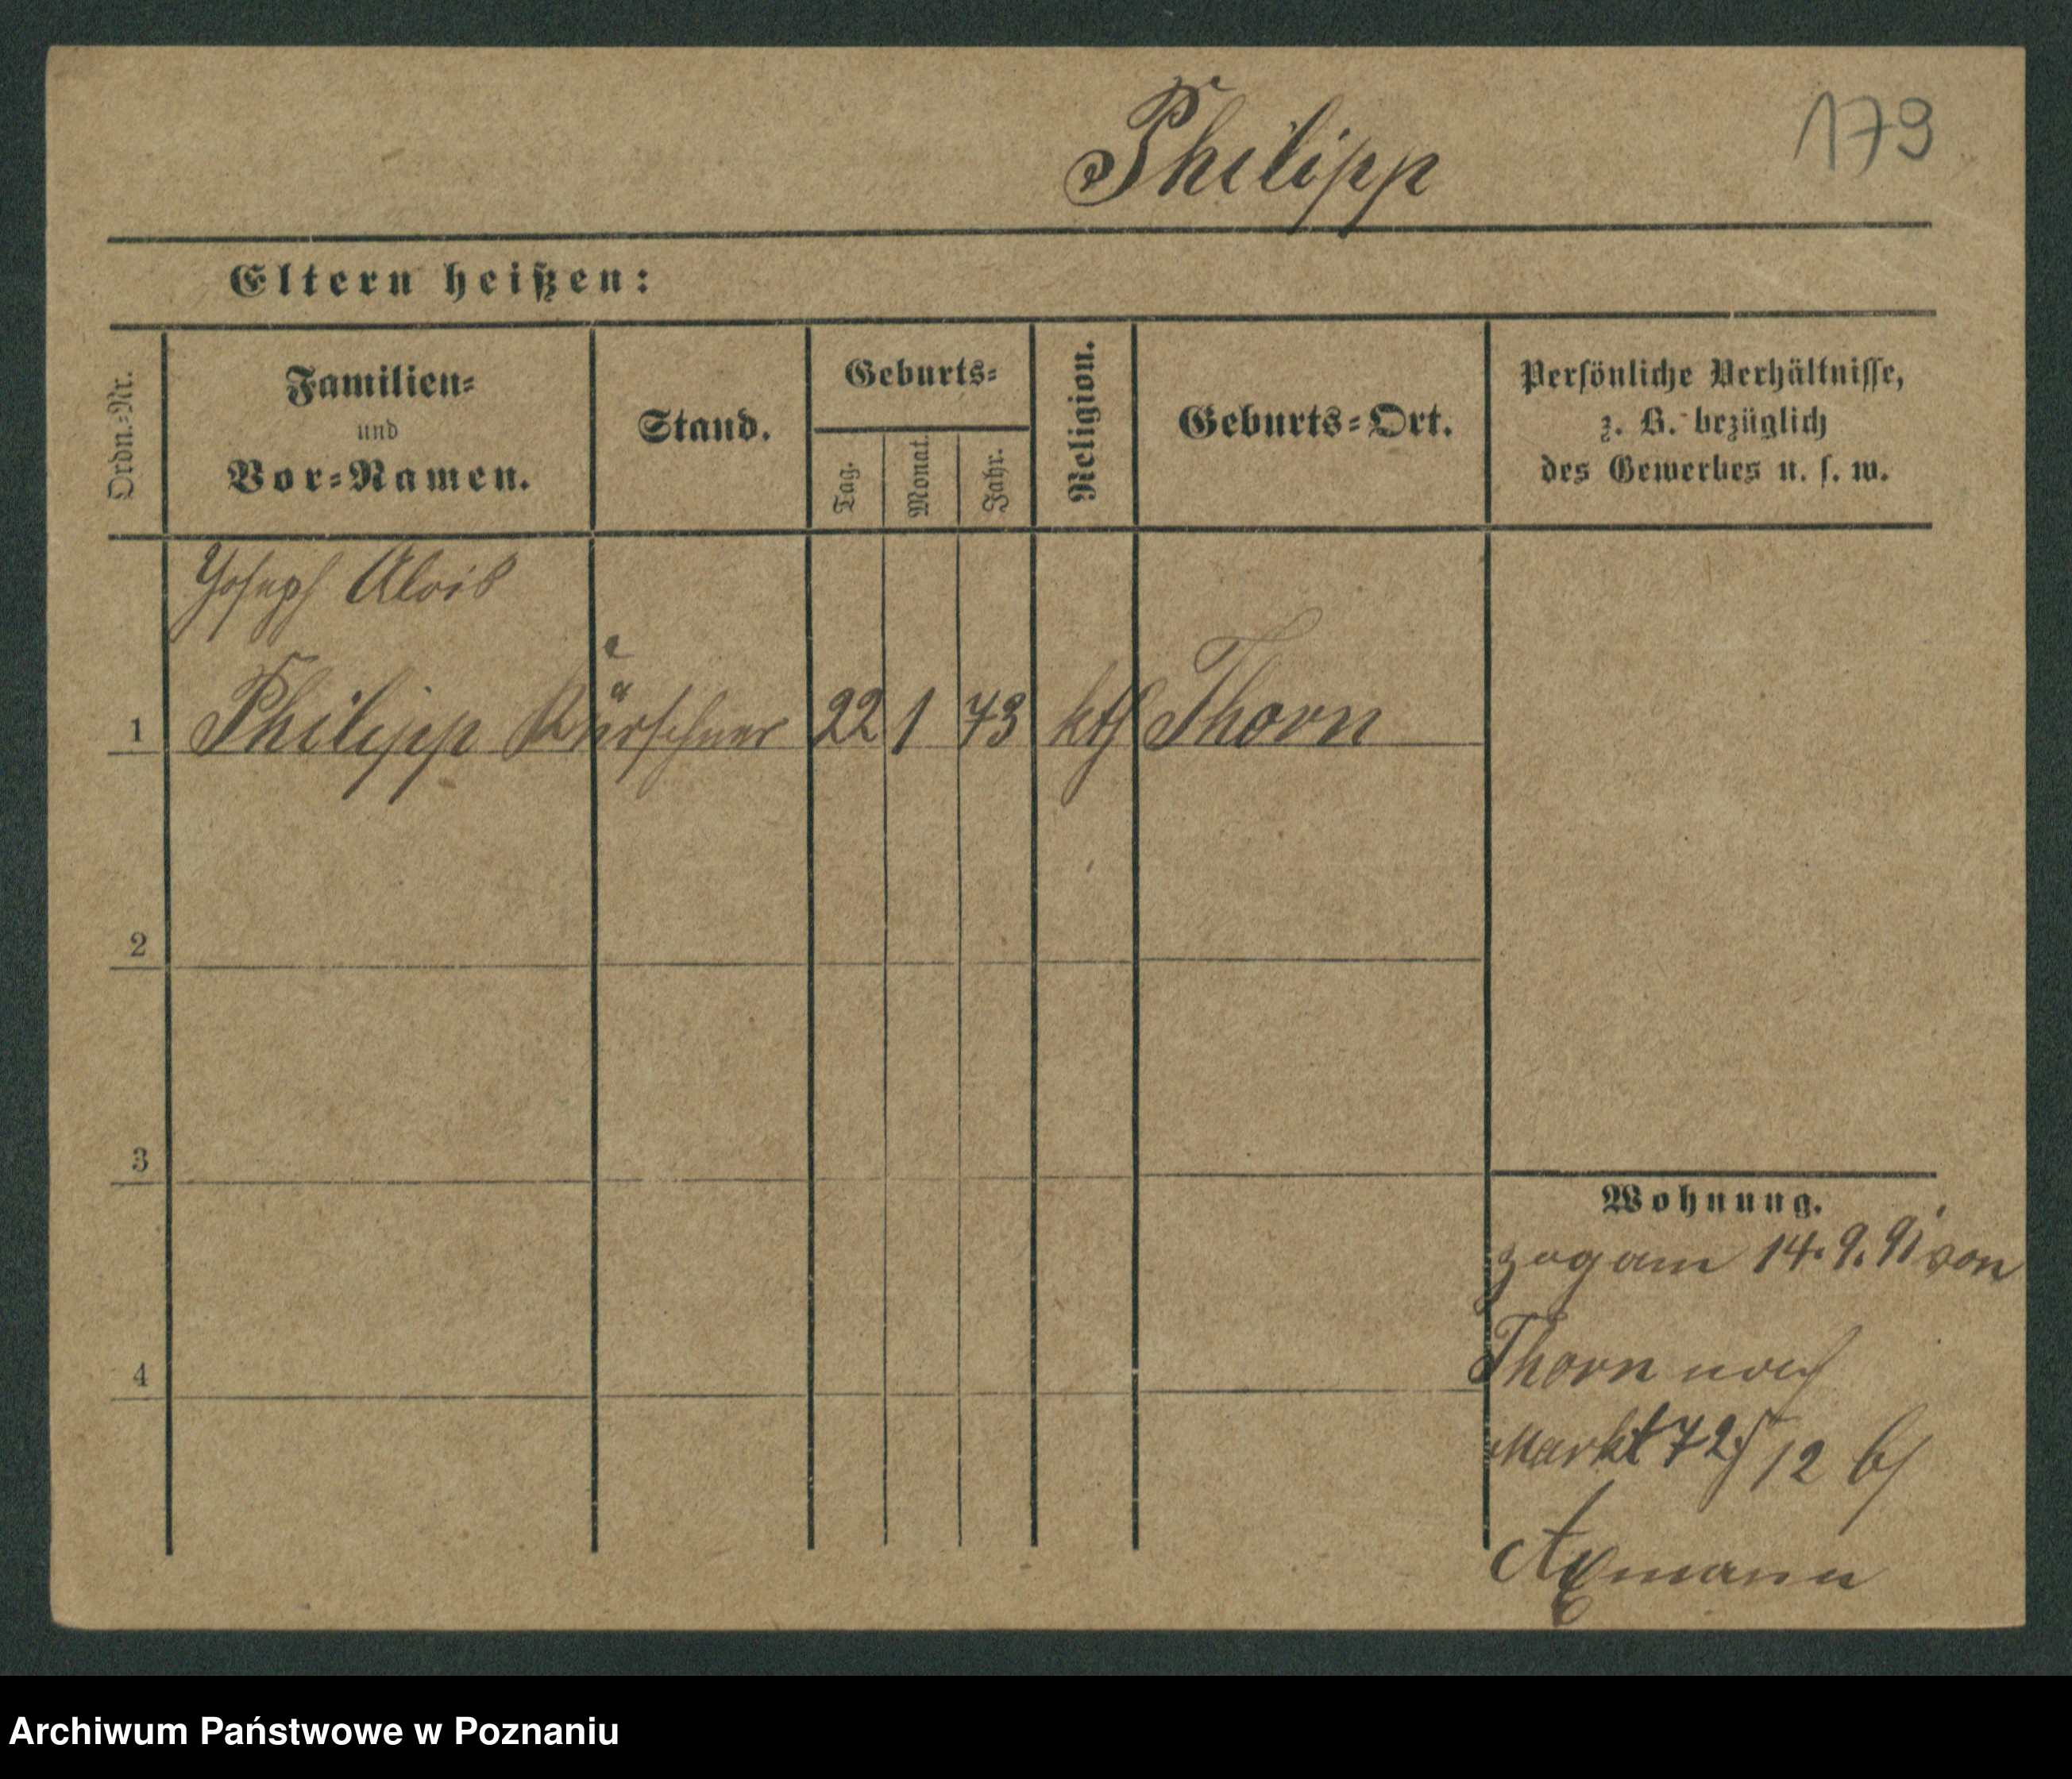 Philipp
179
Eltern heißen:
Ordn.-Nr.
Familien-
und
Vor-Namen.
Stand.
Geburts-
Tag.
Monat.
Jahr.
Religion.
Geburts-Ort.
Persönliche Verhältnisse,
z. B. bezüglich
des Gewerbes u. s. w.
Joseph Alois
1 Philipp Kürschner 22 1 73 kth Thorn
2
3
4
Wohnung.
zog am 14.9.91 von
Thorn nach
Markt 72 12 bei
Axmann
Archiwum Państwowe w Poznaniu